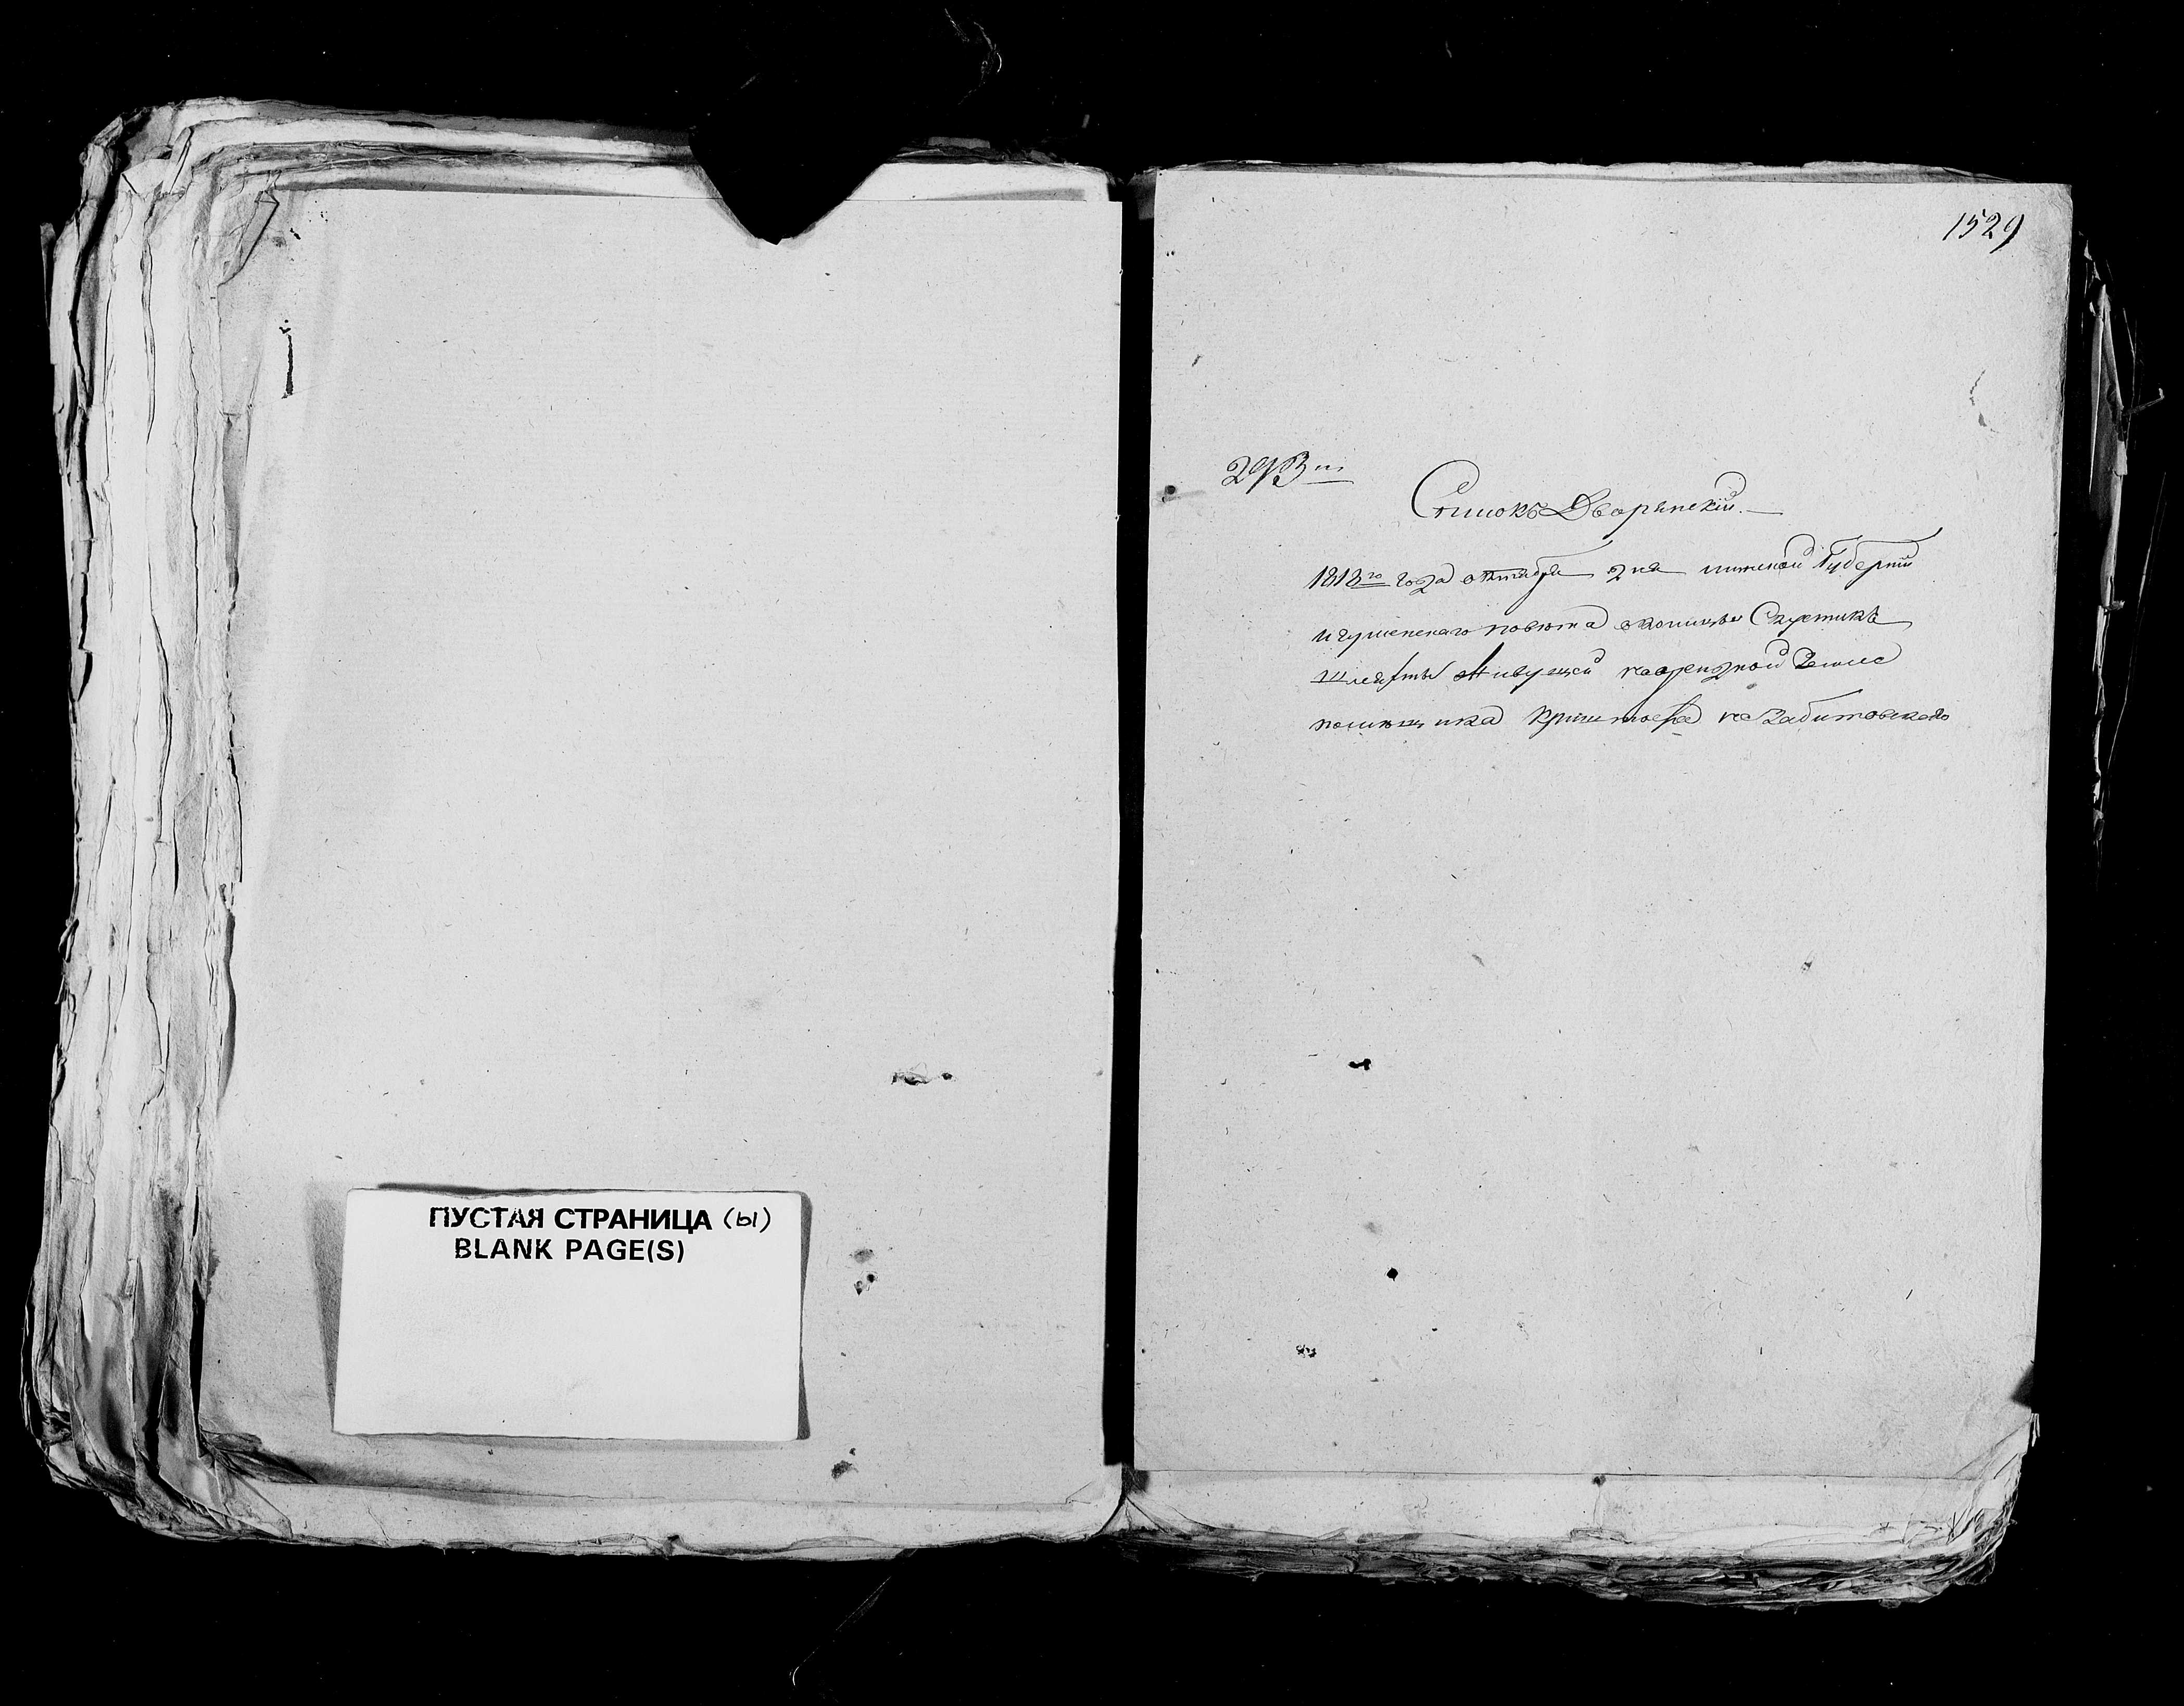 ПУСТАЯ СТРАНИЦА (ы)
BLANK PAGE(S)
1529
293
Списокъ Дворянскій.
1818го года октября дня минской Губерніи
игуменскаго повѣта околицы
шляхты живущей на арендной Земле
помѣщика криштофа незабитовскаго